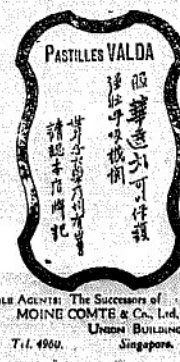 PASTILLES VALDA
服華達丸可以保護
強壯呼吸機關
請認本店牌記
AGENTS: The Successors of
MOINE COMTE & Co., Ltd.
UNION BUILDING
Tel. 4960. Singapore.